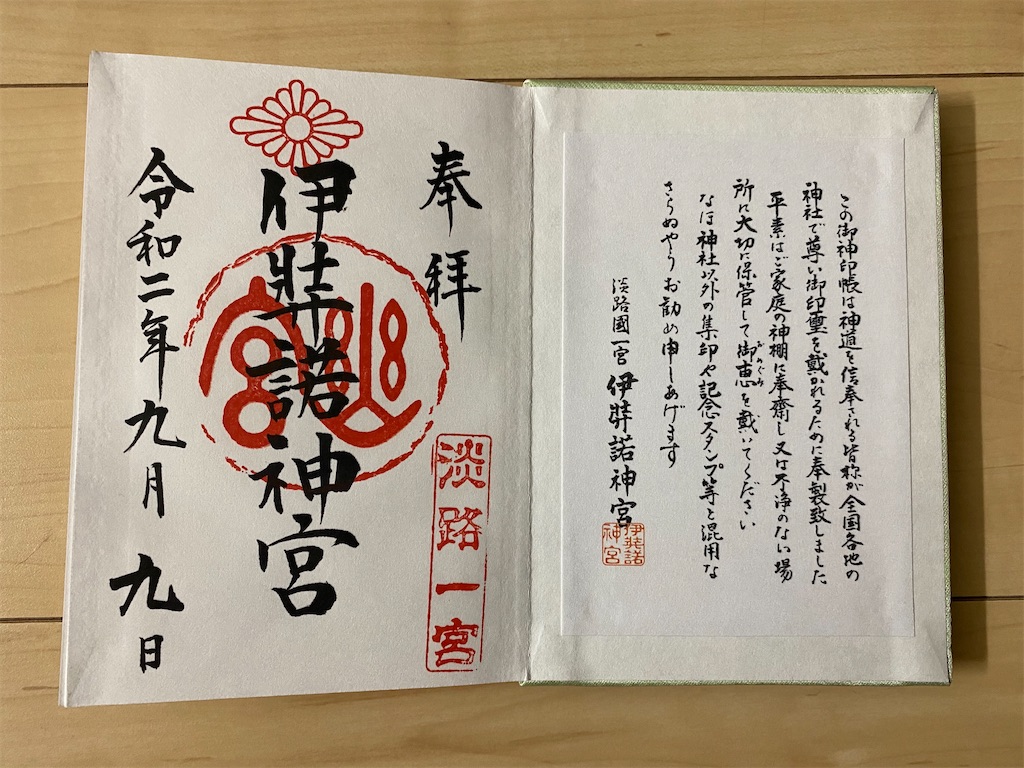 この御神印帳は神道を信奉される皆称が全国各地の
神社で尊い御印璽を戴かれるために奉製致しました
平素はご家庭の神棚に奉齋し又は不浄のない場
所に大切に保管して御恵を戴いてください
なほ神社以外の集印や記念スタンプ等と混用な
さらぬやうお勧め申しあげます
淡路國一宮 伊弉諾神宮
伊弉諾神宮
奉拝
淡路一宮
伊弉諾神宮
幽宮
令和二年九月九日